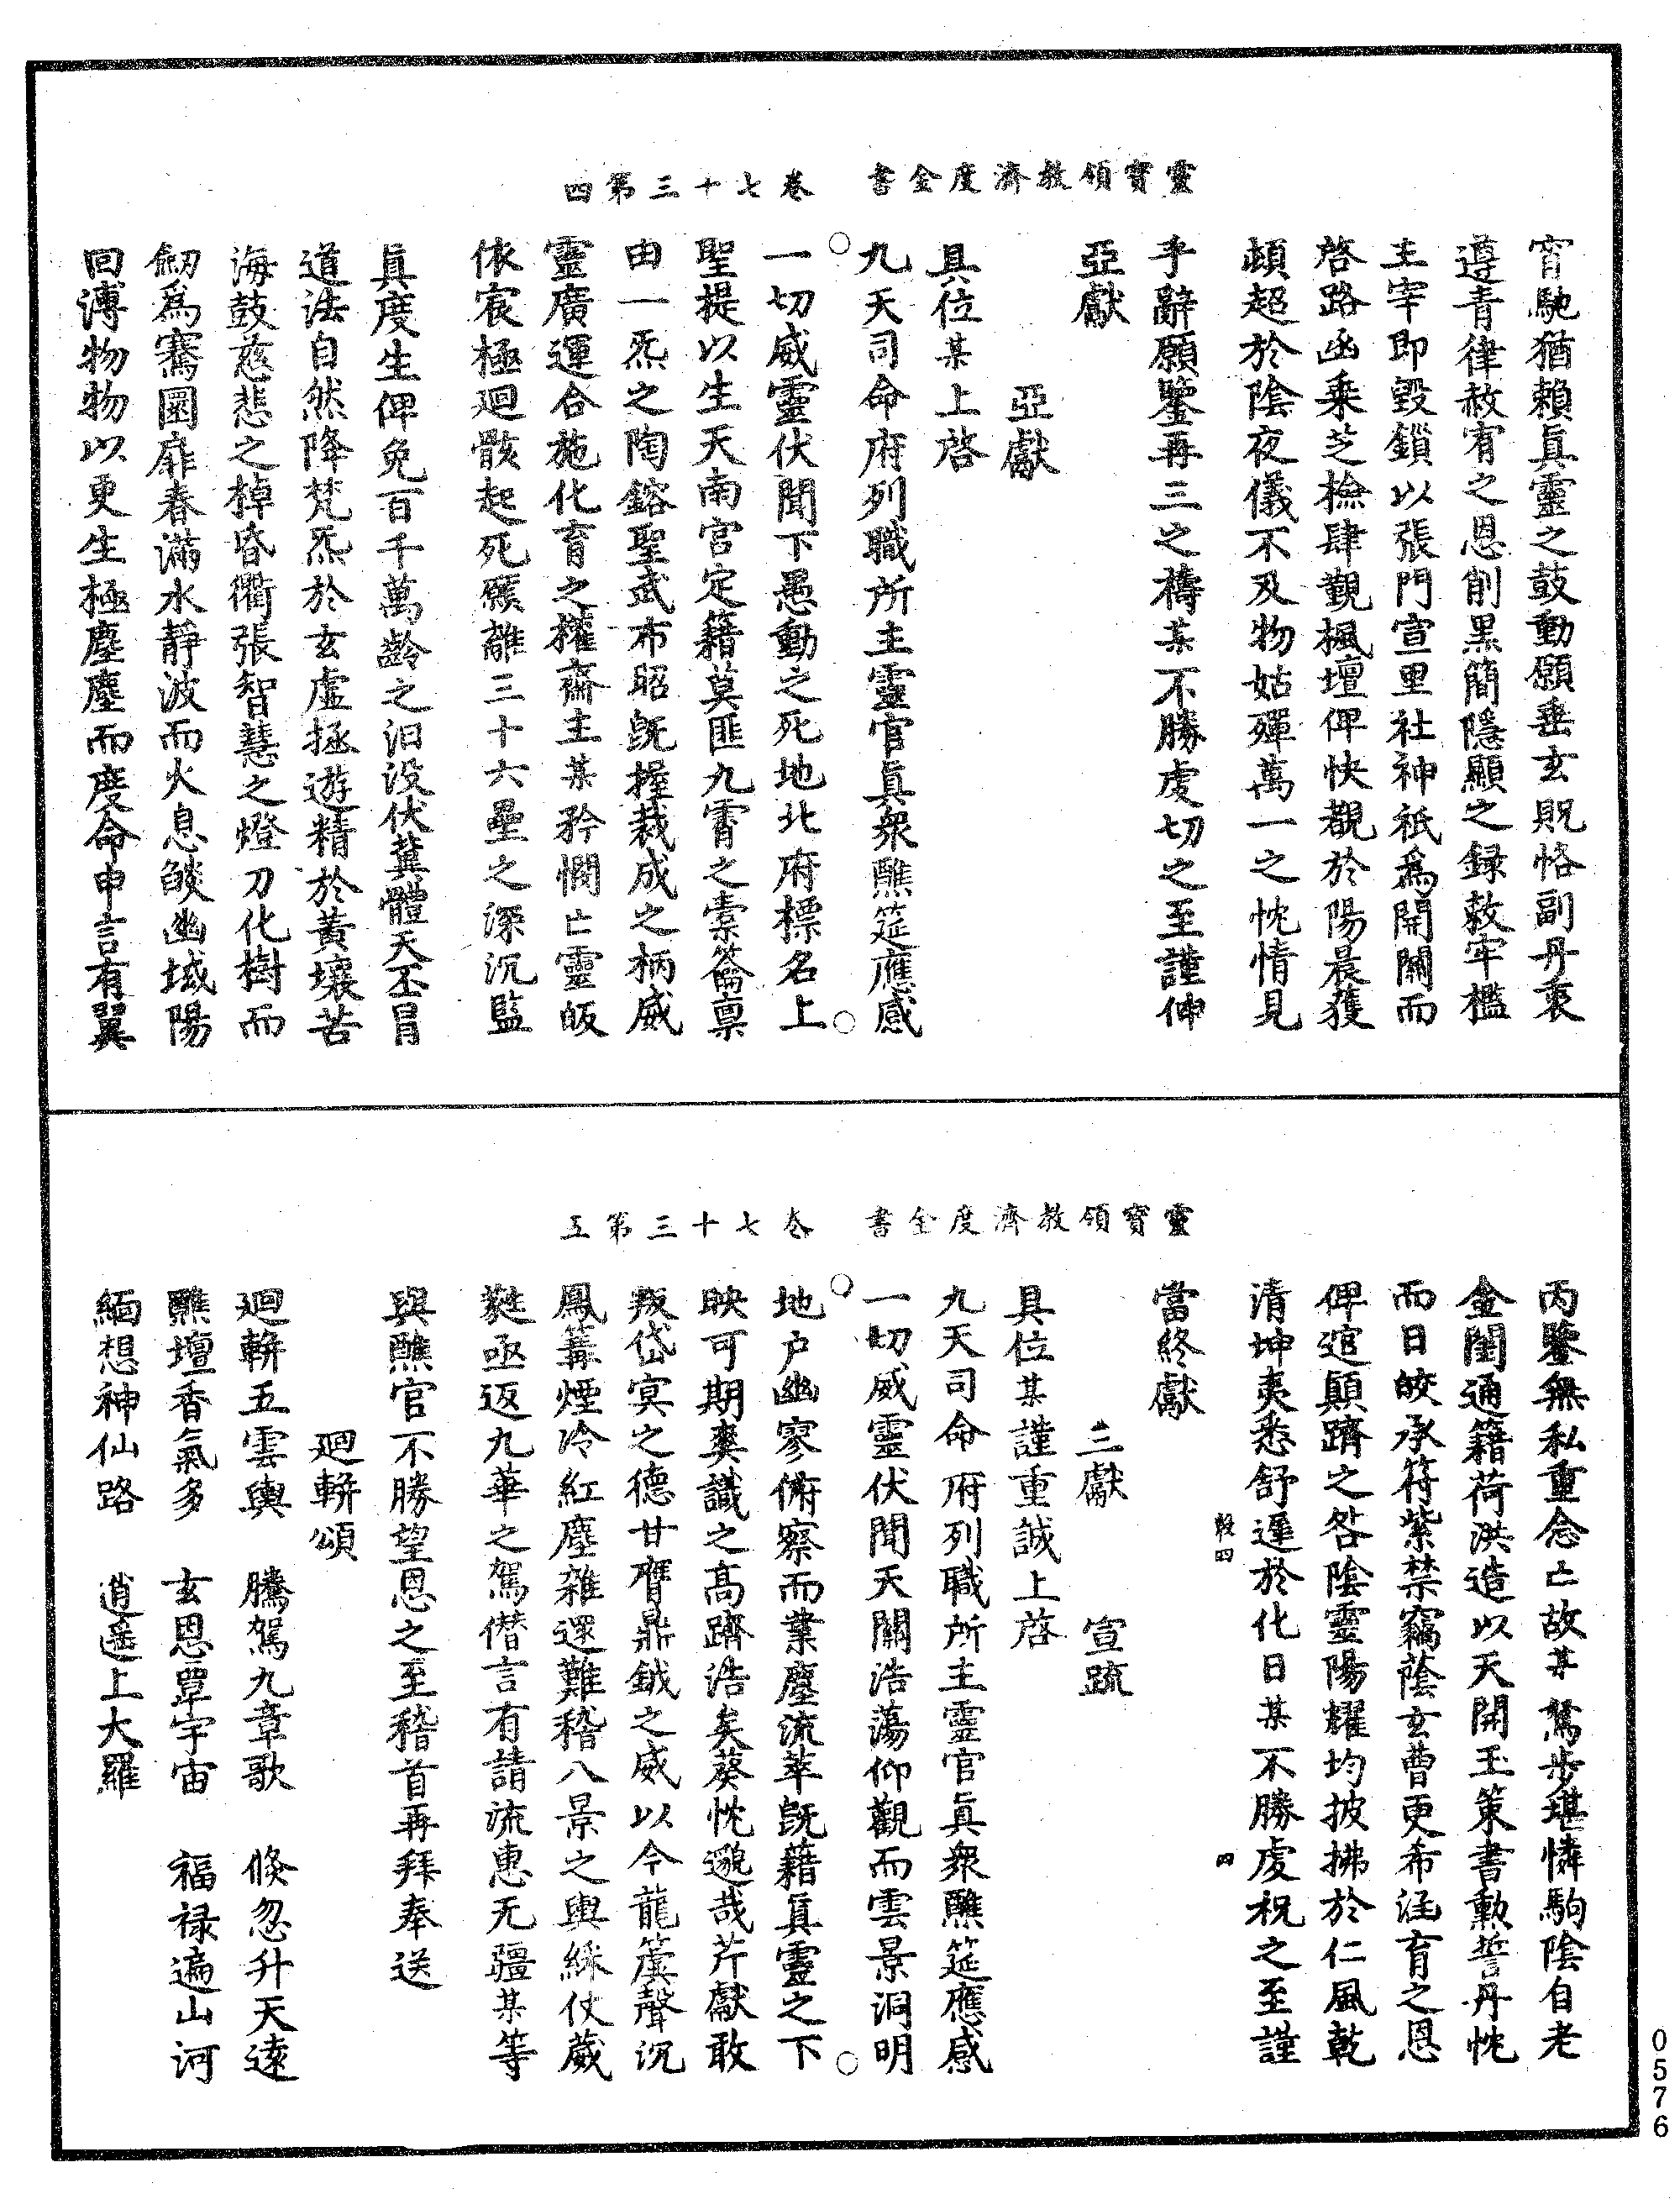 靈寶領教濟度金書 卷七十三第四
宵馳猶賴眞靈之鼓動願垂玄貺恪副丹衷
遵青律赦宥之恩削黑簡隱顯之録敕牢檻
主宰即毀鎖以張門宣里社神祇為開關而
啓路函乗芝撿肆覲楓壇俾快覩於陽晨獲
頓超於陰夜儀不及物姑殫萬一之忱情見
乎辭願鑒再三之禱某不勝虔切之至謹伸
亞獻
亞獻
具位某上啓
九天司命府列職所主靈官眞衆醮筵應感
一切威靈伏聞下愚動之死地北府標名上
聖提以生天南宫定籍莫匪九霄之素籥禀
由一炁之陶鎔聖武布昭旣握裁成之柄威
靈廣運合施化育之權齋主某矜憫亡靈皈
依宸極迴骸起死願離三十六壘之深沉監
眞度生俾免百千萬齡之汩没伏冀體天丕冒
道法自然降梵炁於玄虛拯遊精於黄壤苦
海鼓慈悲之棹昏衢張智慧之燈刀化樹而
劒為騫園扉春滿水靜波而火息燄幽域陽
回溥物物以更生極塵塵而度命申言有翼
靈寶領教濟度金書 卷七十三第五
丙鑒無私重念亡故某駑步堪憐駒陰自老
金闈通籍荷洪造以天開玉策書勳誓丹忱
而日皎承符紫禁竊蔭玄曹更希洭育之恩
俾逭顛躋之咎陰靈陽耀均披拂於仁風乾
清坤夷悉舒遲於化日某不勝虔祝之至謹
當終獻
三獻 宣疏
具位某謹重誠上啓
九天司命府列職所主靈官眞衆醮筵應感
一切威靈伏聞天關浩蕩仰觀而雲景洞明
地户幽寥俯察而業塵流萃旣藉眞靈之下
映可期爽識之高躋浩矣葵忱邈哉芹獻敢
叛岱冥之德甘膺鼎鉞之威以今龍簴聲沉
鳳篝煙冷紅塵雜還難稽八景之輿綵仗葳
蕤亟返九華之駕僭言有請流惠无疆某等
與醮官不勝望恩之至稽首再拜奉送
迴軿頌
迴軿五雲輿 騰駕九章歌 倏忽升天逵
醮壇香氣多 玄恩覃宇宙 福禄遍山河
緬想神仙路 逍遥上大羅
毂四 四
0576